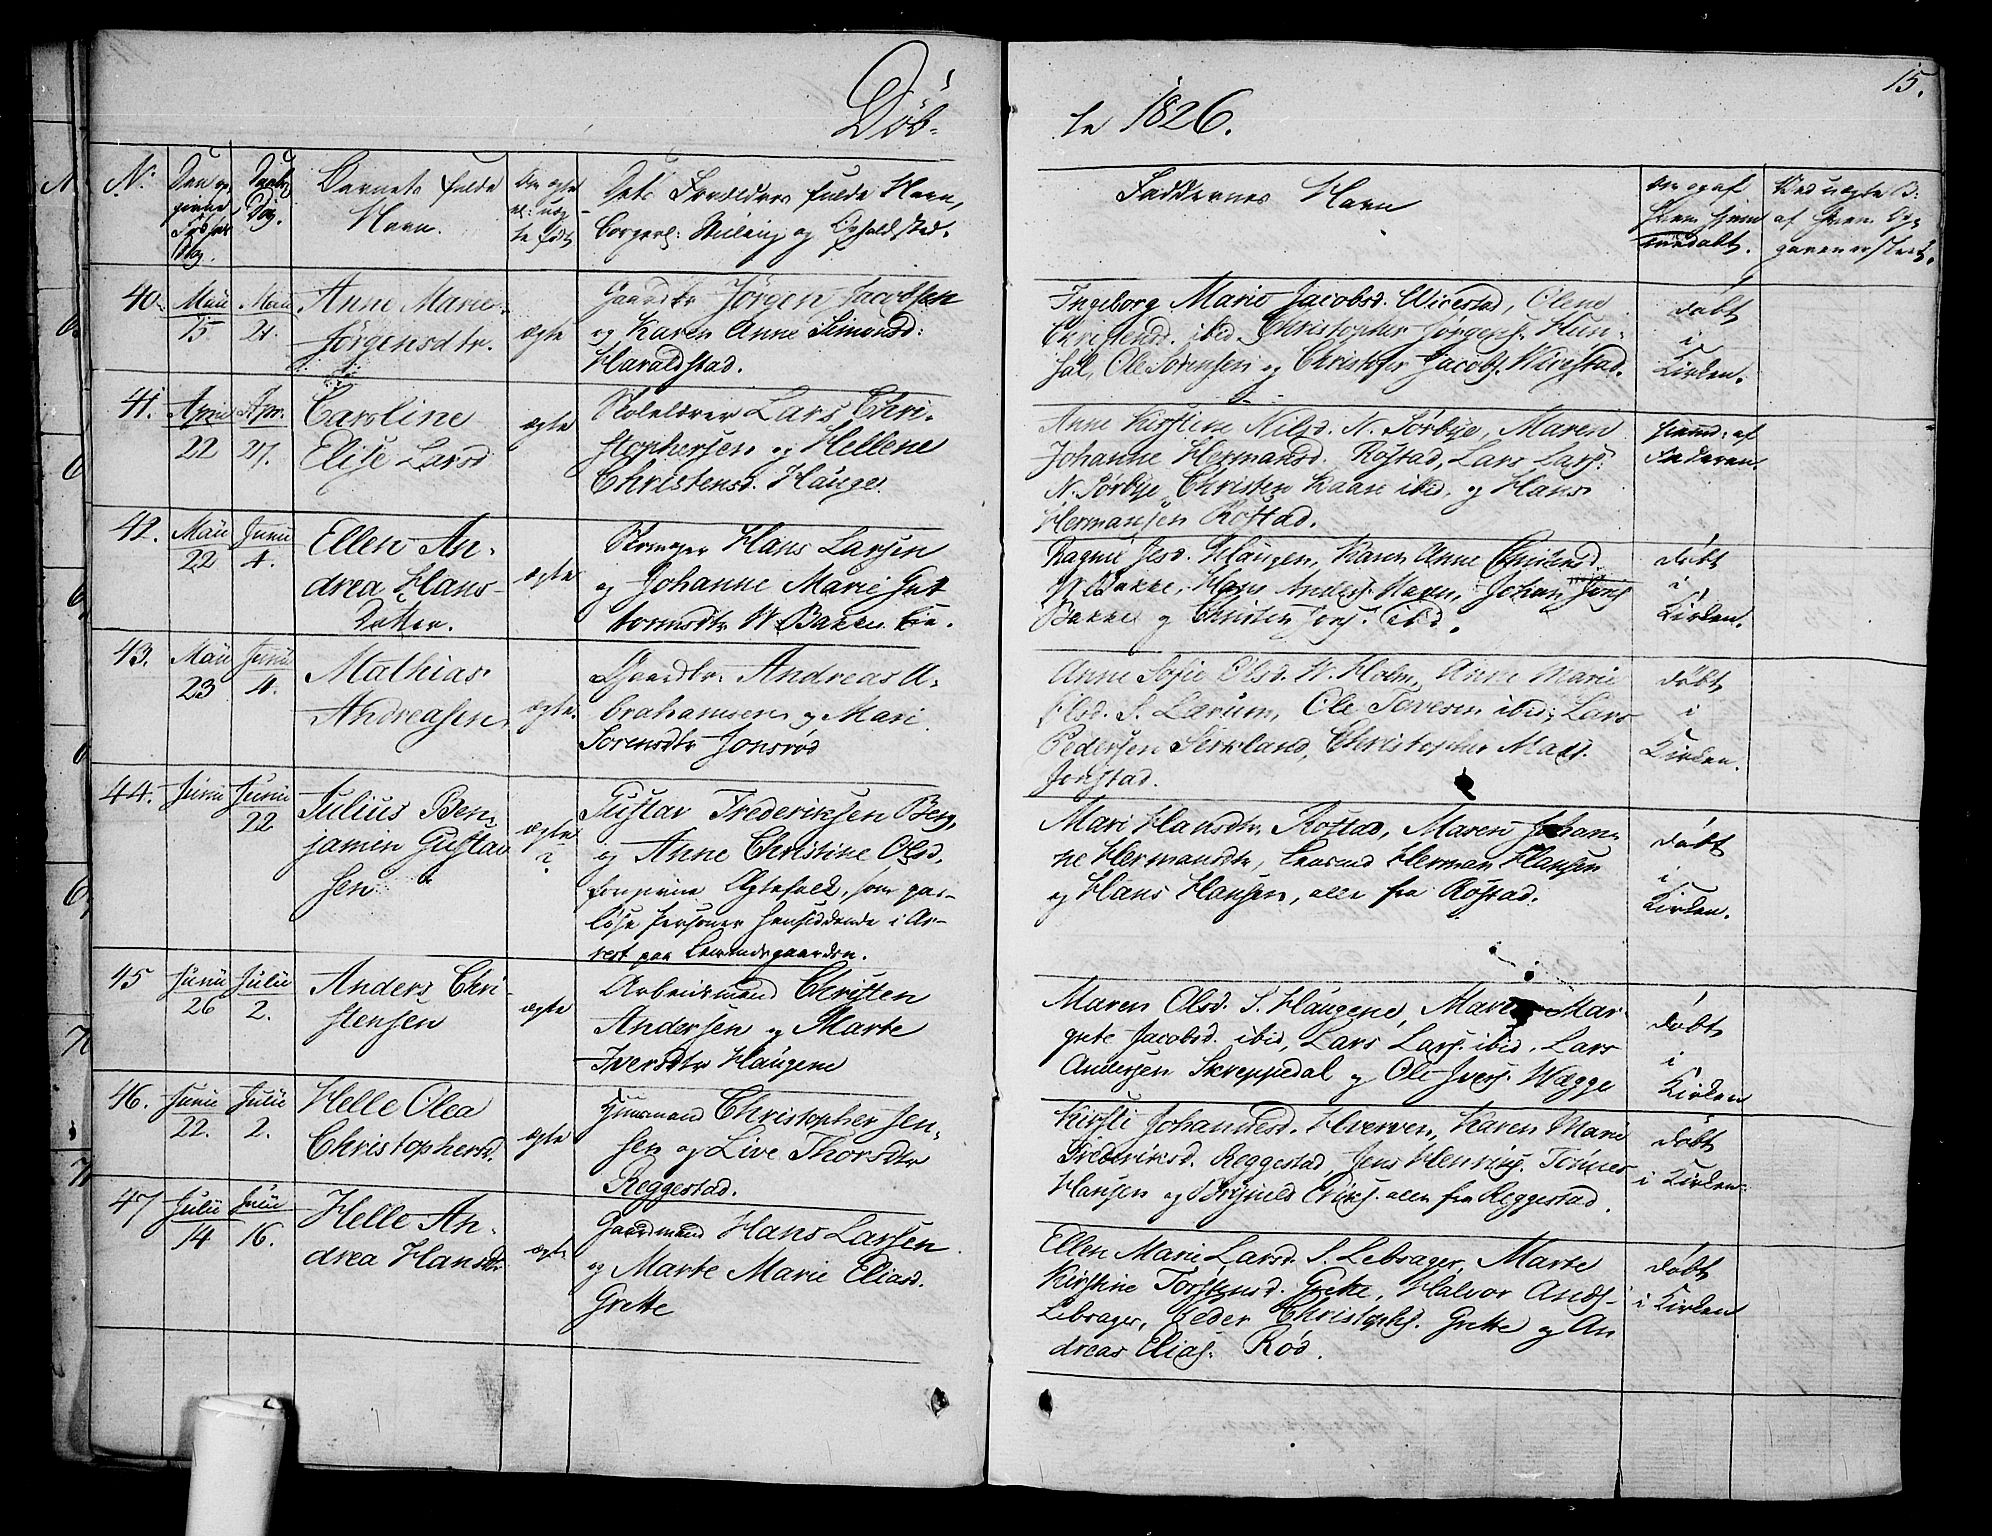 15.
Döb-
te 1826.
N.
Den an-
givne
Fødsels
Dag.
Daabs
Dag.
Barnets fulde
Navn.
Om ægte
el: uæg-
te født
Dets Forældres fulde Navn,
borgerl: Stilling og Opholdsted.
Faddernes Navn
Om og af
hvem hjem-
medøbt.
Ved uægte B:
af hvem
40.
Maii
15.
Maii
21.
Anne Marie
Jørgensdtr.
ægte
Gaardbr. Jørgen Jacobsen
og Karen Anne Simonsd:
Haraldstad.
Ingeborg Marie Jacobsd. Wirestad, Olene
Christensd. ibid, Christopher Jørgens. Hun-
sal, Ole Sörensen og Christofer Jacobs. Wirestad.
døbt
i
Kirken.
41.
April
22
Apr.
27.
Caroline
Elise Larsd
ægte
Skolelærer Lars Chri-
stophersen og Hellene
Christensd. Hauge.
Anne Kirstine Nilsd. N. Sørbye, Maren
Johanne Hermansd. Röstad, Lars Lars:
N. Sørbye, Christen Kaase ibid, og Hans
Hermansen Röstad.
hjemd: af
Faderen.
42.
Maii
22
Junii
4.
Ellen An-
drea Hans-
Datter.
ægte
Skomager Hans Larsen
og Johanne Marie Gut
tormsdtr W Bakke Eie.
Haugen, Karen Anne Christensd.
W Bakke, Hans Anders. Haven, Johan Jons
Bakke og Christen Jons. ibid.
døbt
i
Kirken.
43.
Maii
23
Junii
4.
Mathias
Andreasen
ægte.
Gaardbr. Andreas A-
brahamsen og Mari
Sorensdtr Jonsrød
Anne Sofie Olsd. W. Holm, Anne Marie
Olsd. S. Lærum, Ole Toresen ibid, Lars
Pedersen Serkland, Christopher Mats.
Jonstad.
døbt
i
Kirken.
44.
Junii
Junii
22
Julius Ben-
jamin Gustav
sen
ægte
?
Gustav Frederiksen Berg,
og Anne Christine Olsd.
foregivne Ægtefolk, som pas-
løse Personer hensiddende i Ar-
rest paa Lensmdsgaarden.
Mari Hansdtr Röstad, Maren Johan-
ne Hermansdtr, Lensmd Herman Hansen
og Hans Hansen, alle fra Röstad.
døbt
i
Kirken.
45
Junii
26
Julii
2.
Anders Chri-
stensen
ægte
Arbeidsmand Christen
Andersen og Marte
Iversdtr Haugene
Maren Olsd. S. Haugene, Maren Mar-
grete Jacobsd. ibid, Lars Lars. ibid. Lars
Andersen Skreppedal og Ole Ivers. Wegge
døbt
i
Kirken
46.
Junii
22.
Julii
2.
Helle Olea
Christophersd.
ægte
Huusmand Christopher Jen-
sen og Live Thorsdtr
Reggestad.
Kirsti Johannesd. Hverven, Karen Marie
Frederiksd. Reggestad, Jens Henriks. Tönnes
Hansen og Eriks. alle fra Reggestad.
døbt
i Kirken
47
Julii
14
Julii
16.
Helle An-
drea Hansdtr
ægte
Gaardmand Hans Larsen
og Marte Marie Eliasd.
Grette
Ellen Marie Larsd. S. Lebsager, Marte
Kirstine Torstensd. Grette, Halvor Ands.
Lebsager, Peder Christophs. Grette og An
dreas Elias. Röd.
døbt
i Kirken